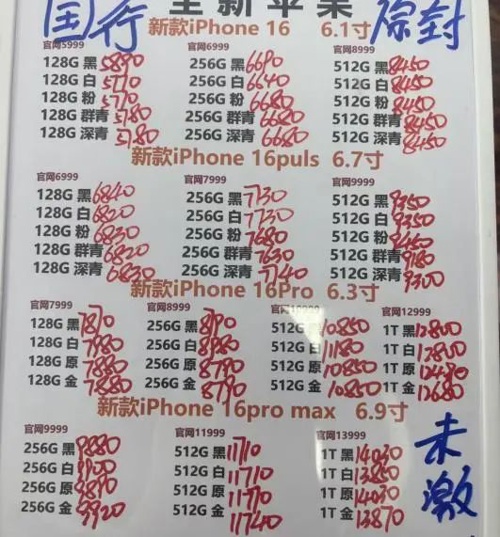 国行 全新苹果 原封
新款iPhone 16 6.1寸
官网5999 官网6999 官网8999
128G 黑 5890 256G 黑 6690 512G 黑 8450
128G 白 5770 256G 白 6640 512G 白 8450
128G 粉 5770 256G 粉 6680 512G 粉 8450
128G 群青 5780 256G 群青 6680 512G 群青 8450
128G 深青 5780 256G 深青 6680 512G 深青 8450
新款iPhone 16puls 6.7寸
官网6999 官网7999 官网9999
128G 黑 6840 256G 黑 7730 512G 黑 9350
128G 白 6820 256G 白 7730 512G 白 9350
128G 粉 6830 256G 粉 7680 512G 粉
128G 群青 6820 256G 群青 7630 512G 群青 9180
128G 深青 6830 256G 深青 7740 512G 深青 9300
新款iPhone 16Pro 6.3寸
官网7999 官网8999 官网12999
128G 黑 7870 256G 黑 512G 黑 10850 1T 黑 12800
128G 白 7980 256G 白 8980 512G 白 11180 1T 白 12800
128G 原 7880 256G 原 8790 512G 原 10850 1T 原
128G 金 7880 256G 金 8790 512G 金 10850 1T 金 12680
新款iPhone 16pro max 6.9寸
官网9999 官网11999 官网13999
256G 黑 9880 512G 黑 11710 1T 黑 14030
256G 白 512G 白 11710 1T 白 13850
256G 原 9890 512G 原 11710 1T 原 14030
256G 金 9920 512G 金 11740 1T 金 13870
未激